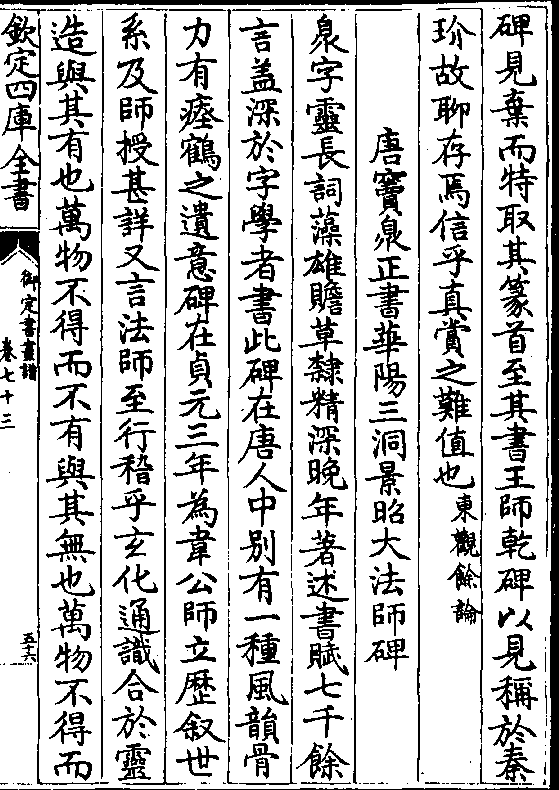 碑見棄而特取其篆首至其書王師乾碑以見稱於秦
玠故聊存焉信乎真賞之難值也東觀餘論
唐竇臮正書華陽三洞景昭大法師碑
臮字靈長詞藻雄贍草隸精深晚年著述書賦七千餘
言蓋深於字學者書此碑在唐人中别有一種風韻骨
力有瘞鶴之遺意碑在貞元三年為韋公師立歴叙世
系及師授甚詳又言法師至行稽乎玄化通識合於靈
造與其有也萬物不得而不有與其無也萬物不得而
欽定四庫全書
御定書畫譜
卷七十三
五六